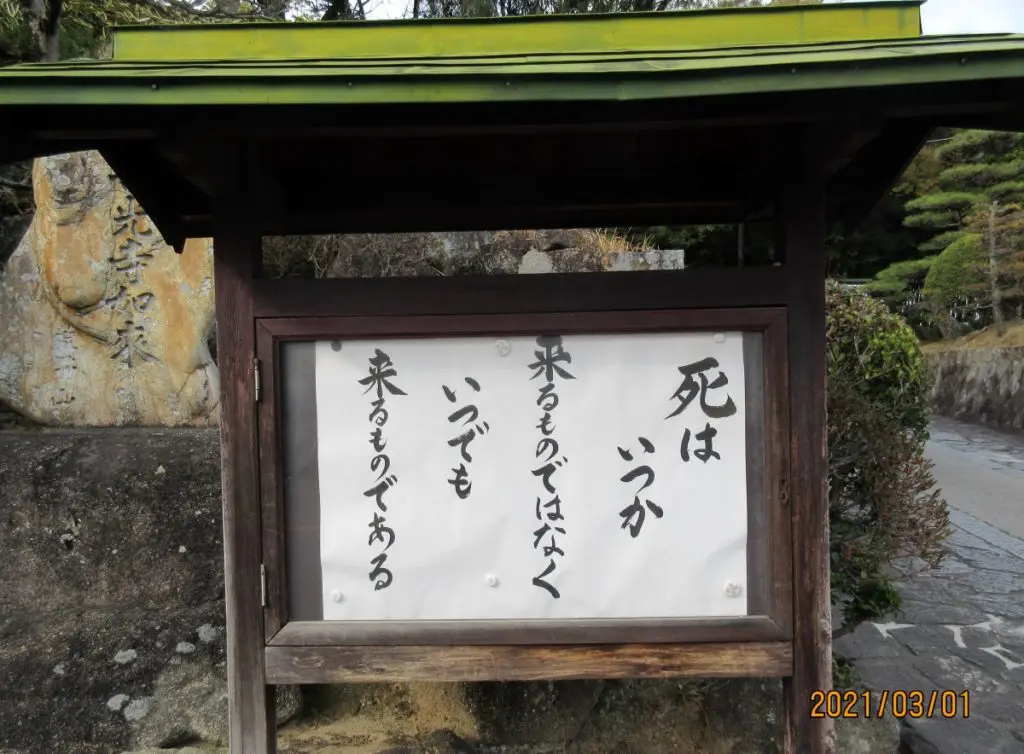 死は
いつか
来るものではなく
いつでも
来るものである
光寺如来
2021/03/01